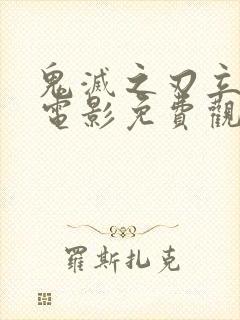 鬼滅之刃立
電影免費觀
羅斯扎克